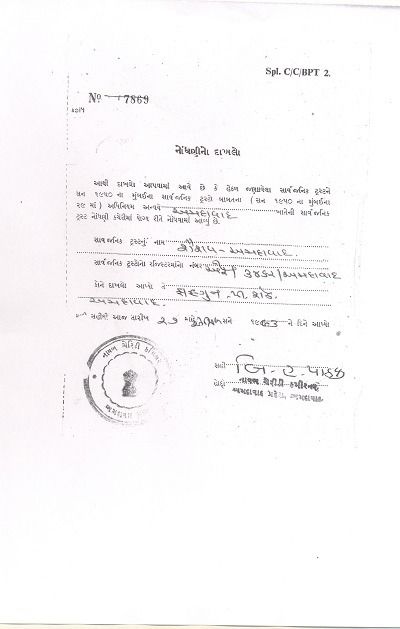 Spl. C/C/BPT 2.
No 7869
નોંધણીનો દાખલો
આથી દાખલો આપવામાં આવે છે કે હેઠળ જણાવેલા સાર્વજનિક ટ્રસ્ટને
સન ૧૯૫૦ ના મુંબઈના સાર્વજનિક ટ્રસ્ટો બાબતના ( સન ૧૯૫૦ ના મુંબઈના
૨૯ મા ) અધિનિયમ અન્વયે અમદાવાદ ખાતેની સાર્વજનિક
ટ્રસ્ટ નોંધણી કચેરીમાં યોગ્ય રીતે નોંધવામાં આવ્યું છે.
સાર્વજનિક ટ્રસ્ટનું નામ - અમદાવાદ.
સાર્વજનિક ટ્રસ્ટોના રજિસ્ટરમાંનો નંબર /અમદાવાદ
કોને દાખલો આપ્યો તે
અમદાવાદ.
સહીથી આજ તારીખ ૨૭ સને ૧૯૬૩ ને દિને આપ્યો
સહી
હોદ્દો નાયબ ચેરીટી કમિશનર
અમદાવાદ
નાયબ ચેરિટી કમિશનર